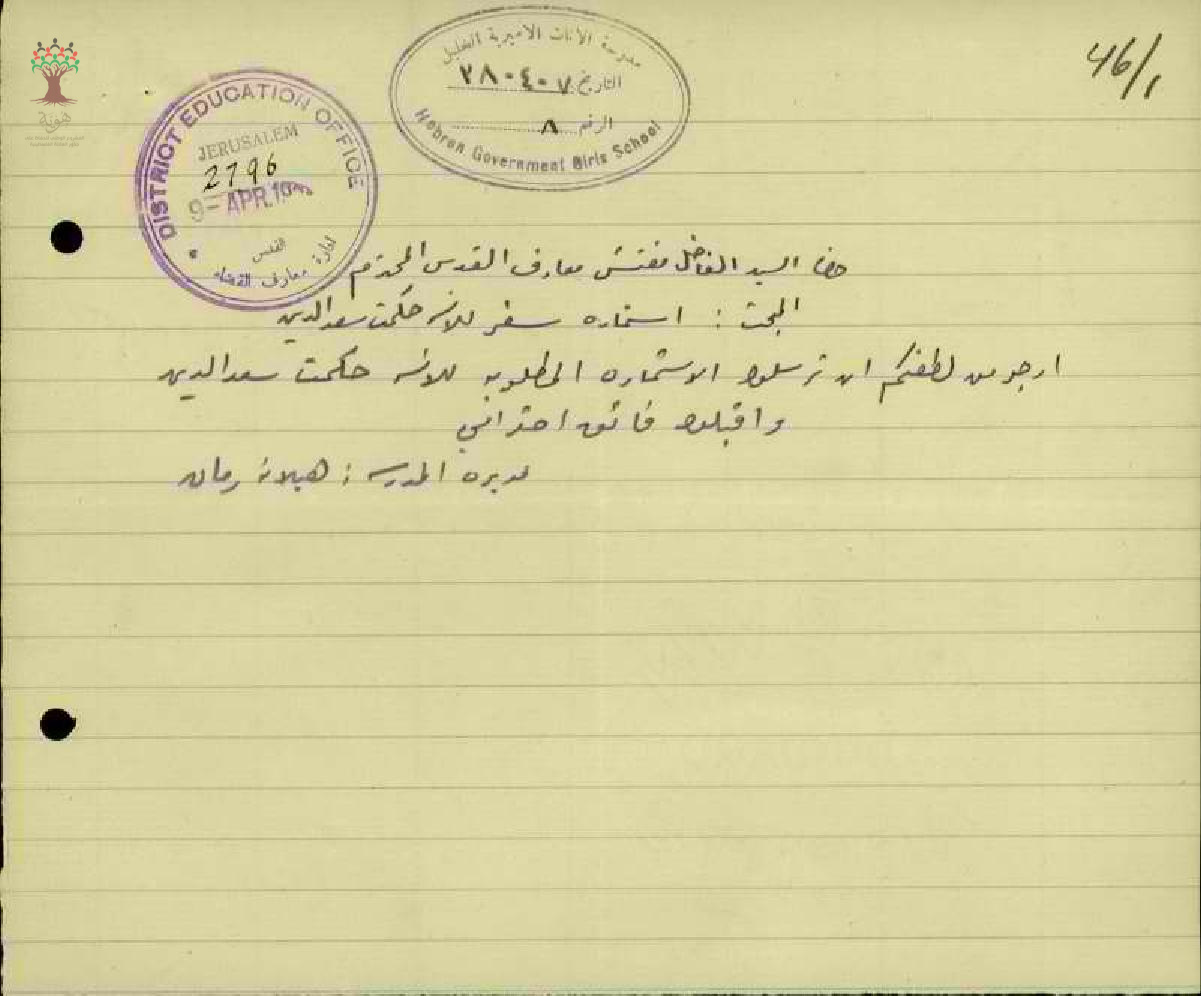 46/1
مدرسة الاناث الاميرية الخليل
التاريخ ٧-٤-٢٨
الرقم ٨
Hebron Government Girls School
DISTRICT EDUCATION OFFICE
JERUSALEM
2796
9 - APR. 19
القدس
ادارة معارف القضاء
هوية
السيد الفاضل مفتش معارف القدس المحترم
المبحث : استماره سفر للآنسه حكمت سعد الدين
ارجو من لطفكم ان ترسلوا الاستماره المطلوبه للآنسه حكمت سعد الدين
واقبلوا فائق احترامي
مديره المدرسه : هيلانه رمان